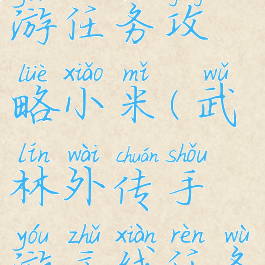 游任务攻
lüè xiǎo mǐ wǔ
略小米(武
lín wài chuán shǒu
林外传手
yóu zhǔ xiàn rèn wù
游主线任务